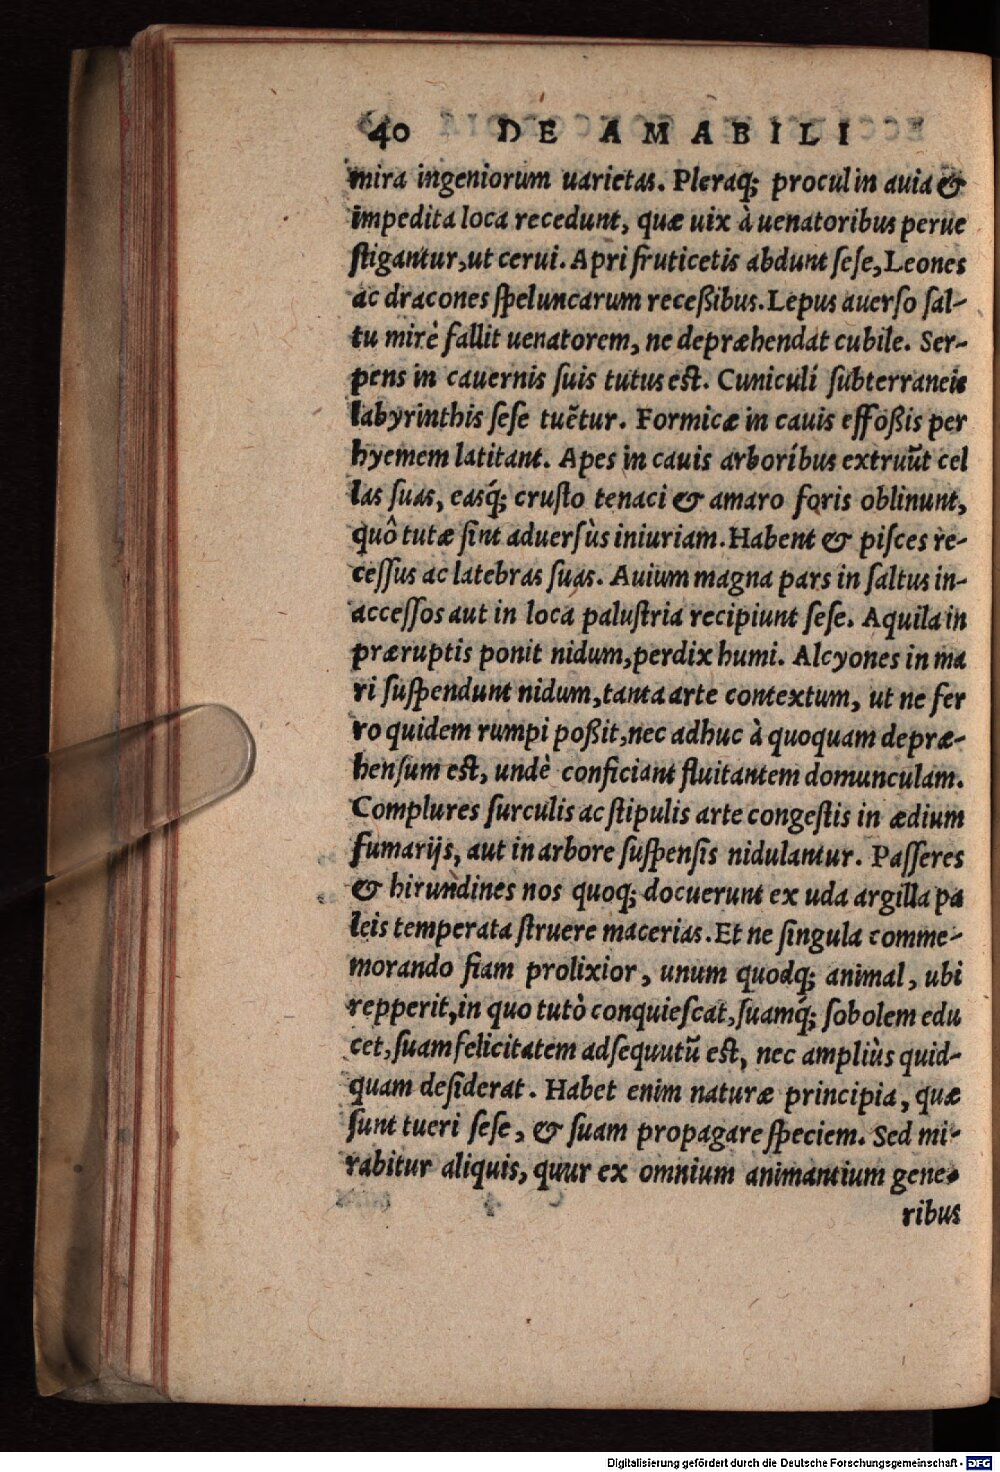 40 DE AMABILI
mira ingeniorum uarietas. Pleraq; procul in auia &
impedita loca recedunt, quæ uix à uenatoribus perue
ſtigantur, ut cerui. Apri fruticetis abdunt ſeſe, Leones
ac dracones ſpeluncarum receßibus. Lepus auerſo ſal-
tu mirè fallit uenatorem, ne depræhendat cubile. Ser-
pens in cauernis ſuis tutus eſt. Cuniculi ſubterraneis
labyrinthis ſeſe tuẽtur. Formicæ in cauis effoßis per
hyemem latitant. Apes in cauis arboribus extruũt cel
las ſuas, easq́; cruſto tenaci & amaro foris oblinunt,
quô tutæ ſint aduerſùs iniuriam. Habent & piſces re-
ceſſus ac latebras ſuas. Auium magna pars in ſaltus in-
acceſſos aut in loca paluſtria recipiunt ſeſe. Aquila in
præruptis ponit nidum, perdix humi. Alcyones in ma
ri ſuſpendunt nidum, tanta arte contextum, ut ne fer
ro quidem rumpi poßit, nec adhuc à quoquam depræ-
henſum est, undè conficiant fluitantem domunculam.
Complures ſurculis ac ſtipulis arte congeſtis in ædium
fumarijs, aut in arbore ſuſpenſis nidulantur. Paſſeres
& hirundines nos quoq; docuerunt ex uda argilla pa
leis temperata ſtruere macerias. Et ne ſingula comme-
morando fiam prolixior, unum quodq; animal, ubi
repperit, in quo tutò conquieſcat, ſuamq́; ſobolem edu
cet, ſuam felicitatem adſequutũ est, nec ampliùs quid-
quam deſiderat. Habet enim naturæ principia, quæ
ſunt tueri ſeſe, & ſuam propagare ſpeciem. Sed mi-
rabitur aliquis, quur ex omnium animantium gene-
ribus
Digitalisierung gefördert durch die Deutsche Forschungsgemeinschaft - DFG